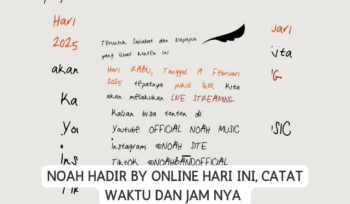 Hari
2025
akan
Ka
You
Ins
Tik
Teruntuk Sahabat dan siapapun
yang lihat konten ini
Hari RABU, Tanggal 19 Februari
2025 tepatnya pukul kita
akan melakukan LIVE STREAMING
Kalian bisa tonton di
Youtube OFFICIAL NOAH MUSIC
Instagram @NOAH_SITE
TikTok @NOAHBANDOFFICIAL
uari
kita
NG
SIC
NOAH HADIR BY ONLINE HARI INI, CATAT
WAKTU DAN JAM NYA